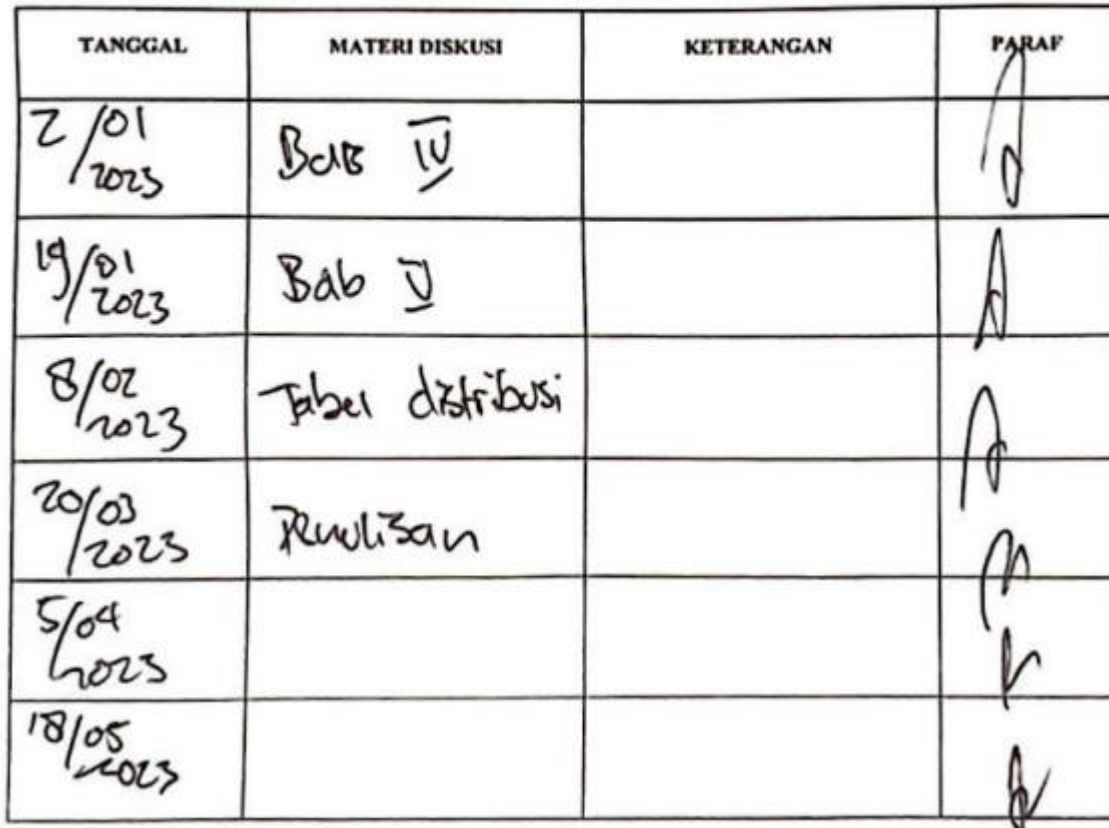 TANGGAL MATERI DISKUSI KETERANGAN PARAF
2/01
2023 Bab IV
19/01
2023 Bab V
8/02
2023 Tabel distribusi
20/03
2023 Penulisan
5/04
2023
18/05
2023